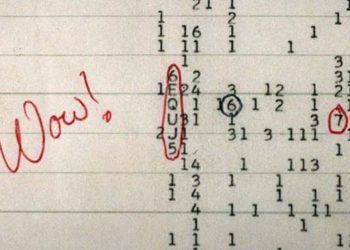 21 1
1 2
1 16 1 1
1 11 1 1
1 3
6 2 3
1 E 24 3 12 1 21
Q 1 16 1 2 1 1
Wow!
U 31 1 3 7
J 1 31 3 111 1
5 1
14 1 113
1 3 1 1 1
4 1 1 1
4 1 1 1 11
1 1
1 1 1 1